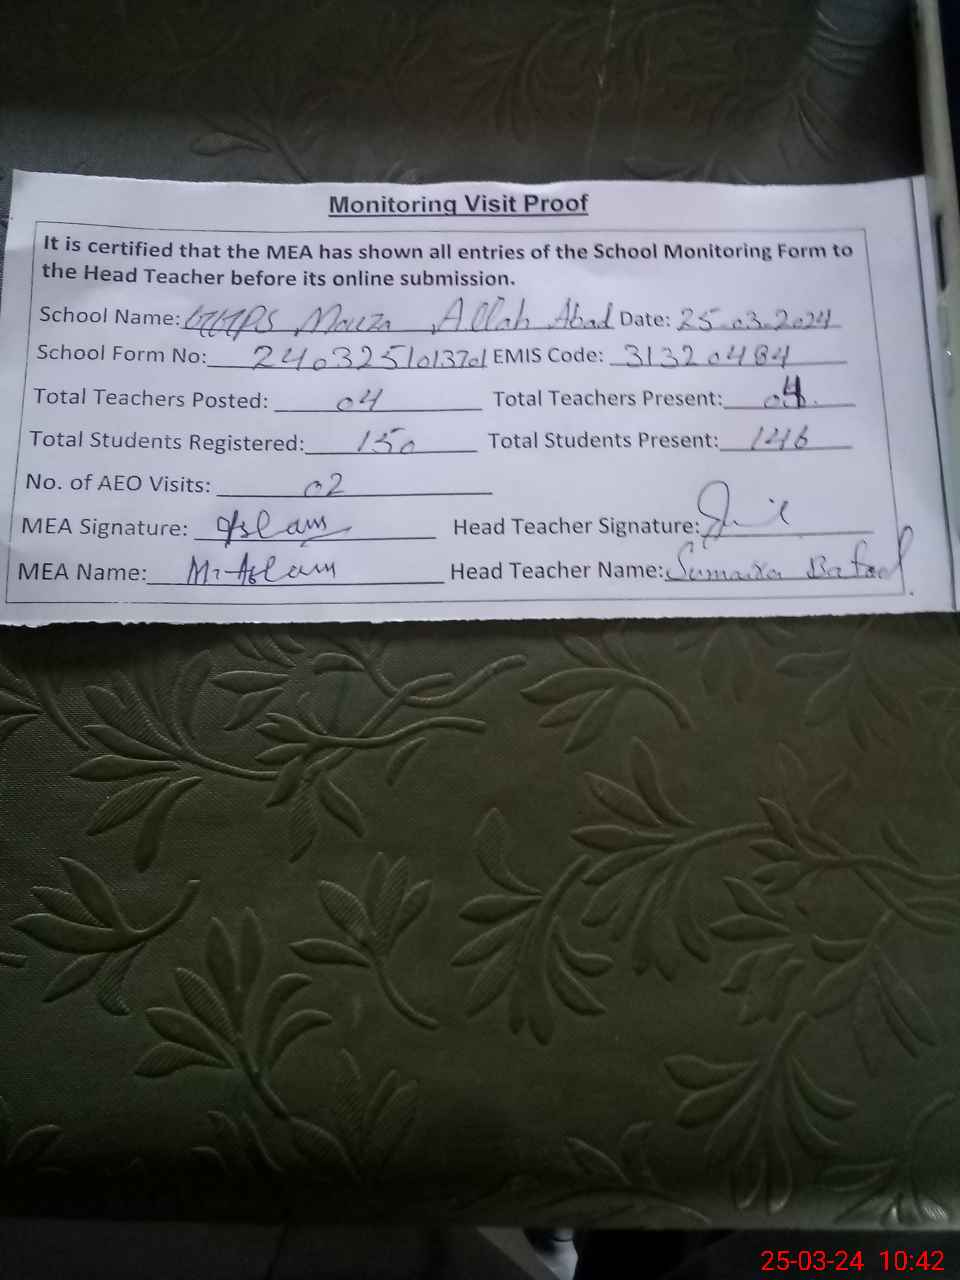 Monitoring Visit Proof
It is certified that the MEA has shown all entries of the School Monitoring Form to
the Head Teacher before its online submission.
School Name: Mouza Allah Abad Date: 25.03.2024
School Form No: EMIS Code: 31320484
Total Teachers Posted: 04 Total Teachers Present: 04.
Total Students Registered: 150 Total Students Present: 146
No. of AEO Visits: 02
MEA Signature: Aslam Head Teacher Signature:
MEA Name: M. Aslam Head Teacher Name: Sumaira Batool
25-03-24 10:42